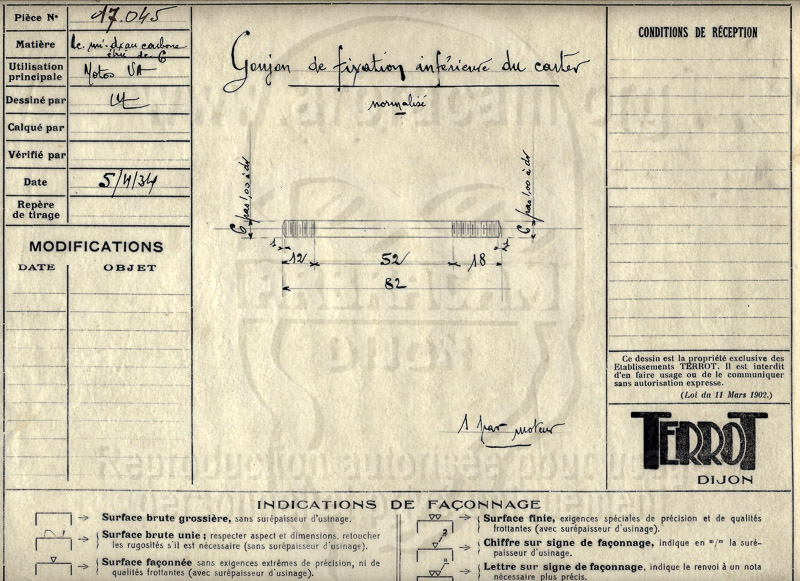 Pièce No 17.045
Matière Ac. mi-dx au carbone
étiré de 6
Utilisation
principale Motos VA
Dessiné par
Calqué par
Vérifié par
Date 5/4/34
Repère
de tirage
MODIFICATIONS
DATE OBJET
Goujon de fixation inférieure du carter
normalisé
6 pas 1,00 à dr
6 pas 1,00 à dr
12 52 18
82
1 par moteur
CONDITIONS DE RÉCEPTION
Ce dessin est la propriété exclusive des
Etablissements TERROT. Il est interdit
d'en faire usage ou de le communiquer
sans autorisation expresse.
(Loi du 11 Mars 1902.)
TERROT
DIJON
INDICATIONS DE FAÇONNAGE
Surface brute grossière, sans surépaisseur d'usinage.
Surface brute unie ; respecter aspect et dimensions, retoucher
les rugosités s'il est nécessaire (sans surépaisseur d'usinage).
Surface façonnée sans exigences extrêmes de précision, ni de
qualités frottantes (avec surépaisseur d'usinage).
Surface finie, exigences spéciales de précision et de qualités
frottantes (avec surépaisseur d'usinage).
Chiffre sur signe de façonnage, indique en m/m la suré-
paisseur d'usinage.
Lettre sur signe de façonnage, indique le renvoi à un nota
nécessaire plus précis.